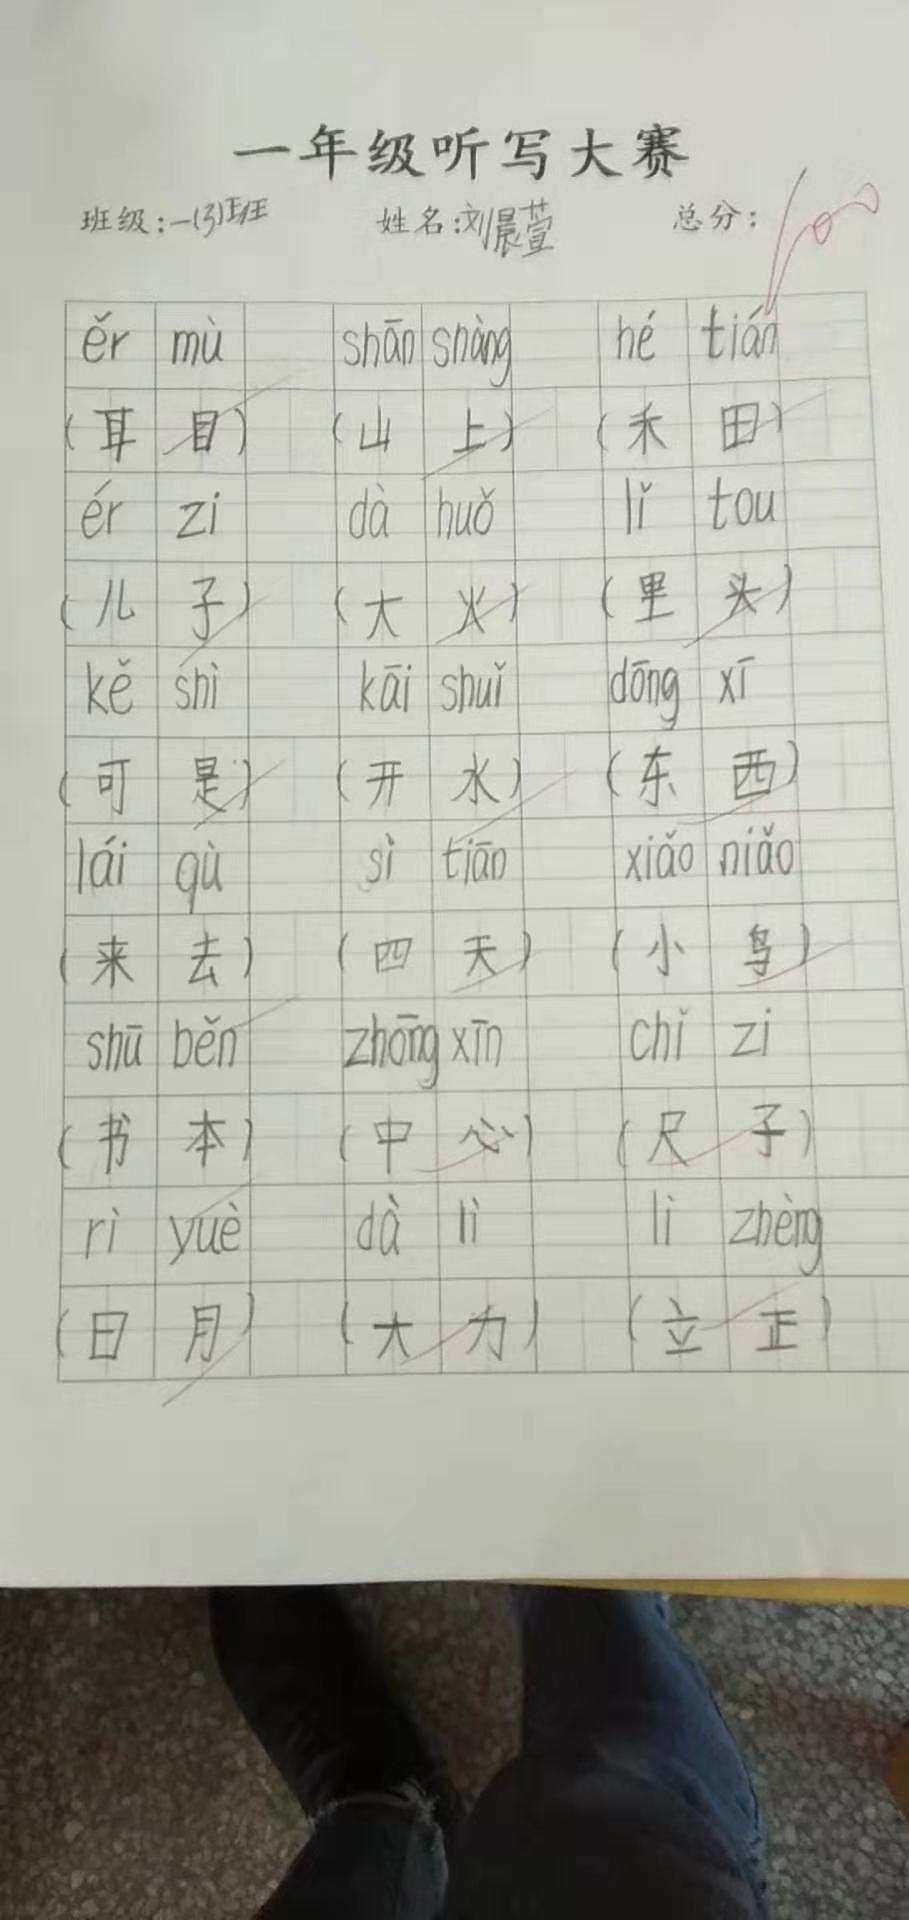 一年级听写大赛
班级:一(3)班 姓名:刘晨萱 总分:100
ěr mù shān shàng hé tián
(耳目) (山上) (禾田)
ér zi dà huǒ lǐ tou
(儿子) (大火) (里头)
kě shì kāi shuǐ dōng xī
(可是) (开水) (东西)
lái qù sì tiān xiǎo niǎo
(来去) (四天) (小鸟)
shū běn zhōng xīn chǐ zi
(书本) (中心) (尺子)
rì yuè dà lì lì zhèng
(日月) (大力) (立正)